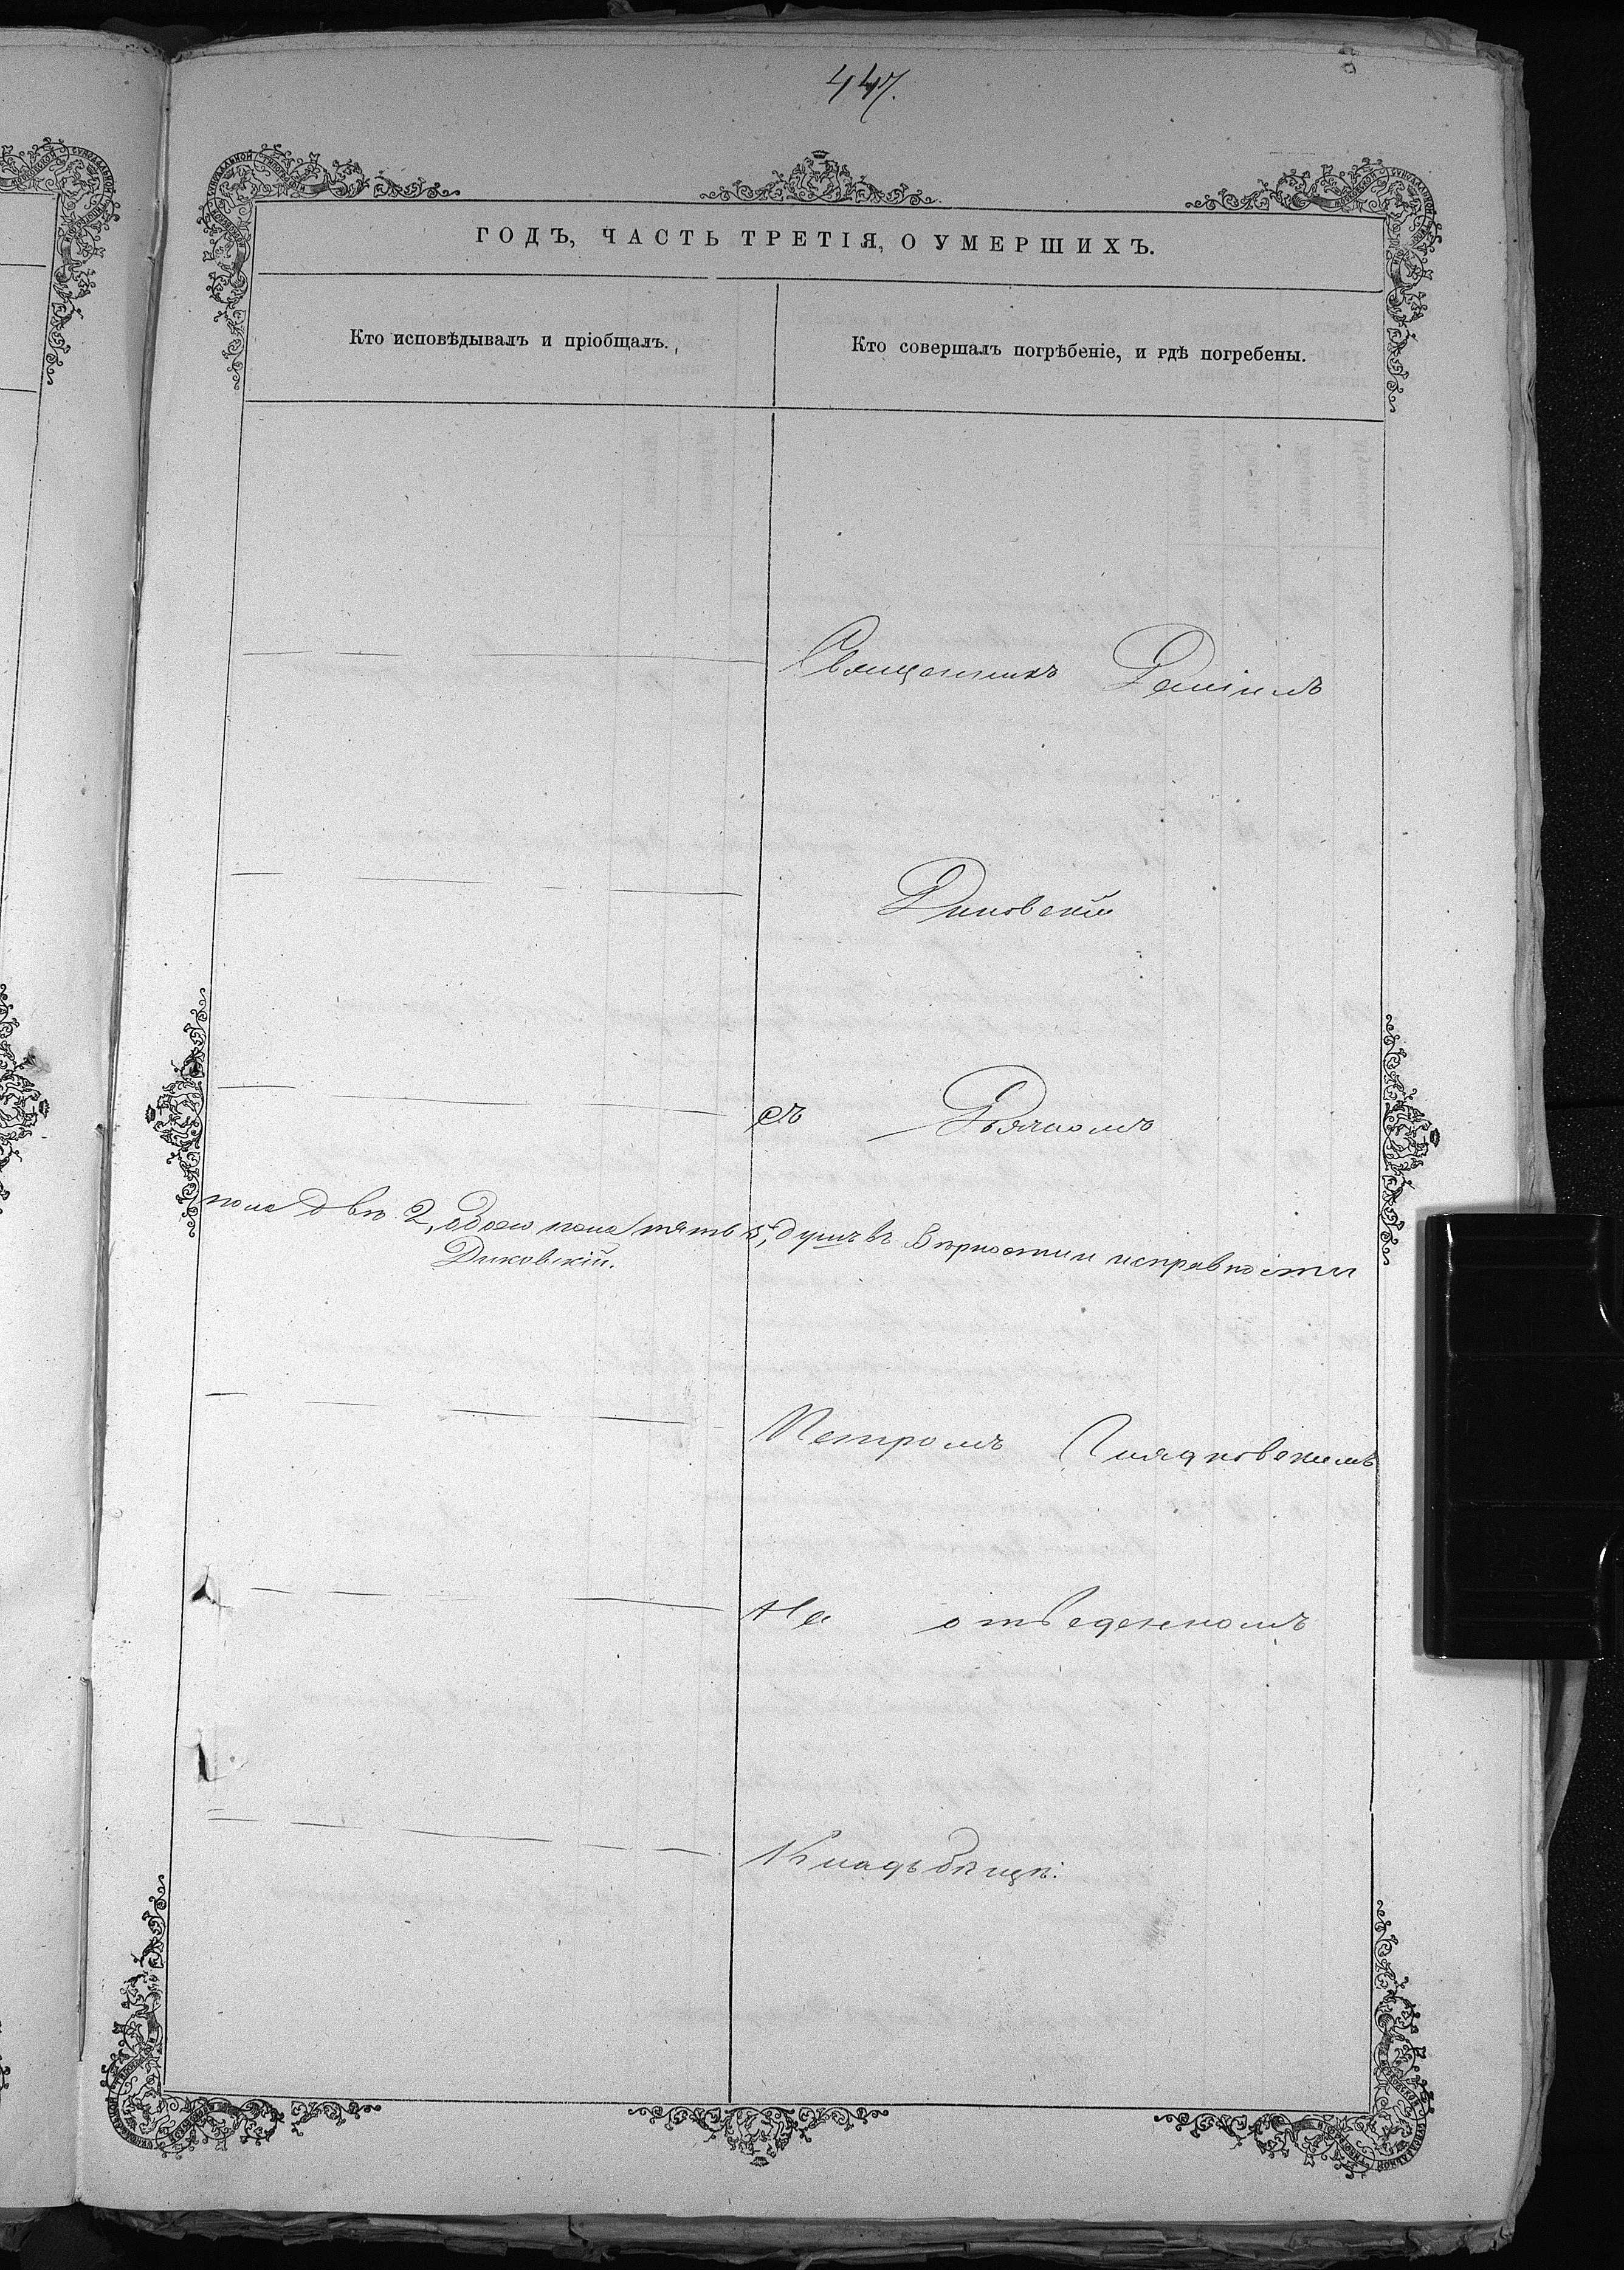 447.
ГОДЪ, ЧАСТЬ ТРЕТІЯ, О УМЕРШИХЪ.
Кто исповѣдывалъ и пріобщалъ.
Кто совершалъ погрѣбеніе, и гдѣ погребены.
Священникъ Данiилъ
Диковскій
съ Дьякомъ
пола двѣ 2, обоего пола пять 5, душъ въ вѣрности и исправности
Диковскій.
Петромъ
На отведенномъ
Кладьбищѣ.